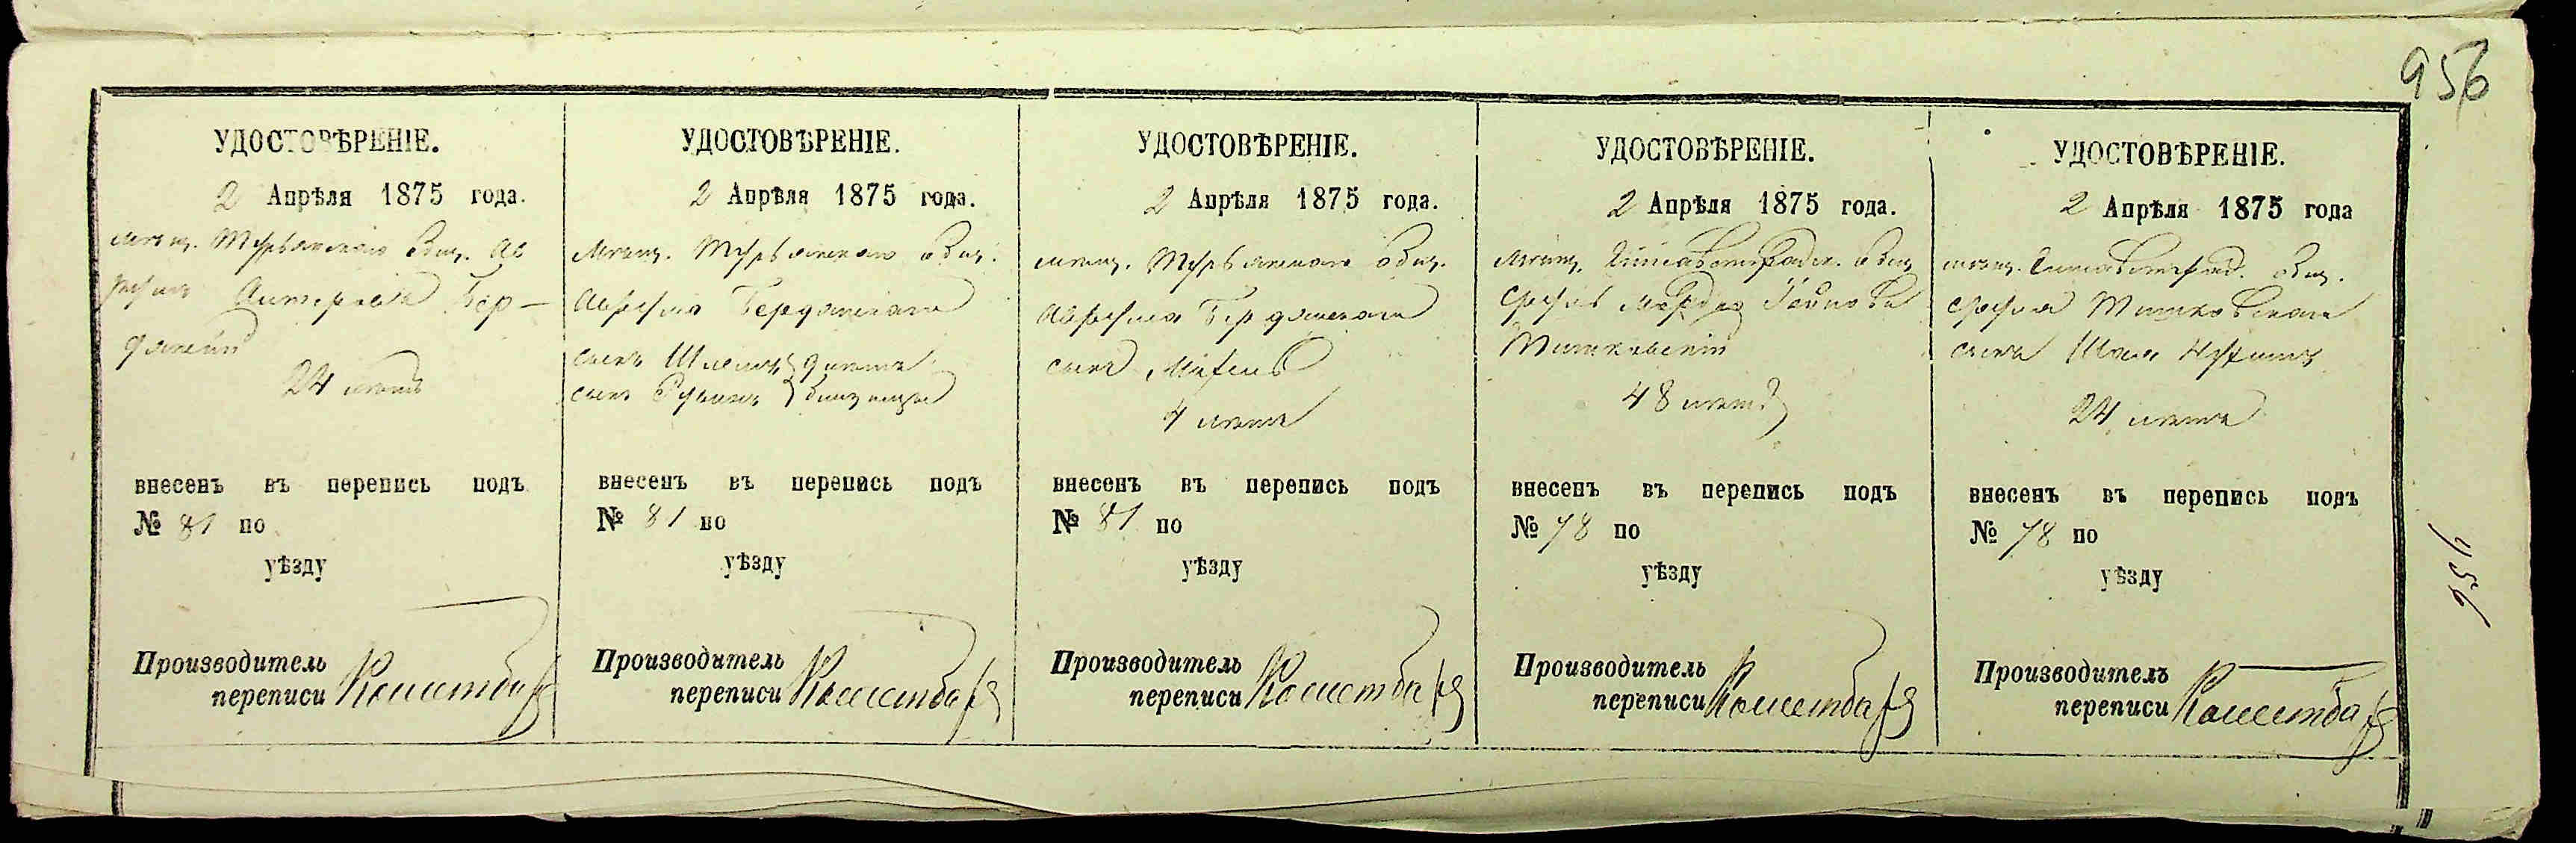 956
УДОСТОВѢРЕНІЕ.
2 Апрѣля 1875 года.
мѣщ. Турьянскаго Общ. Ав
румъ Бер-
дянскій
24 лѣтъ
внесенъ въ перепись подъ
№ 81 по
уѣзду
Производитель
переписи
УДОСТОВѢРЕНІЕ.
2 Апрѣля 1875 года.
Мѣщ. Турьянскаго общ.
Аврума Бердянскаго
сынъ Шлема 9 лѣтъ
сынъ Рувинъ близнецы
внесенъ въ перепись подъ
№ 81 по
уѣзду
Производитель
переписи
УДОСТОВѢРЕНІЕ.
2 Апрѣля 1875 года.
мѣщ. Турьянскаго общ.
Аврума Бердянскаго
сынъ
4 лѣтъ
внесенъ въ перепись подъ
№ 81 по
уѣзду
Производитель
переписи
УДОСТОВѢРЕНІЕ.
2 Апрѣля 1875 года.
Мѣщ. Елисаветградск. Общ
Срулъ
48 лѣтъ
внесенъ въ перепись подъ
№ 78 по
уѣзду
Производитель
переписи
УДОСТОВѢРЕНІЕ.
2 Апрѣля 1875 года
мѣщ. Елисаветград. общ.
Срула
сынъ
24 лѣтъ
внесенъ въ перепись подъ
№ 78 по
уѣзду
Производитель
переписи
956